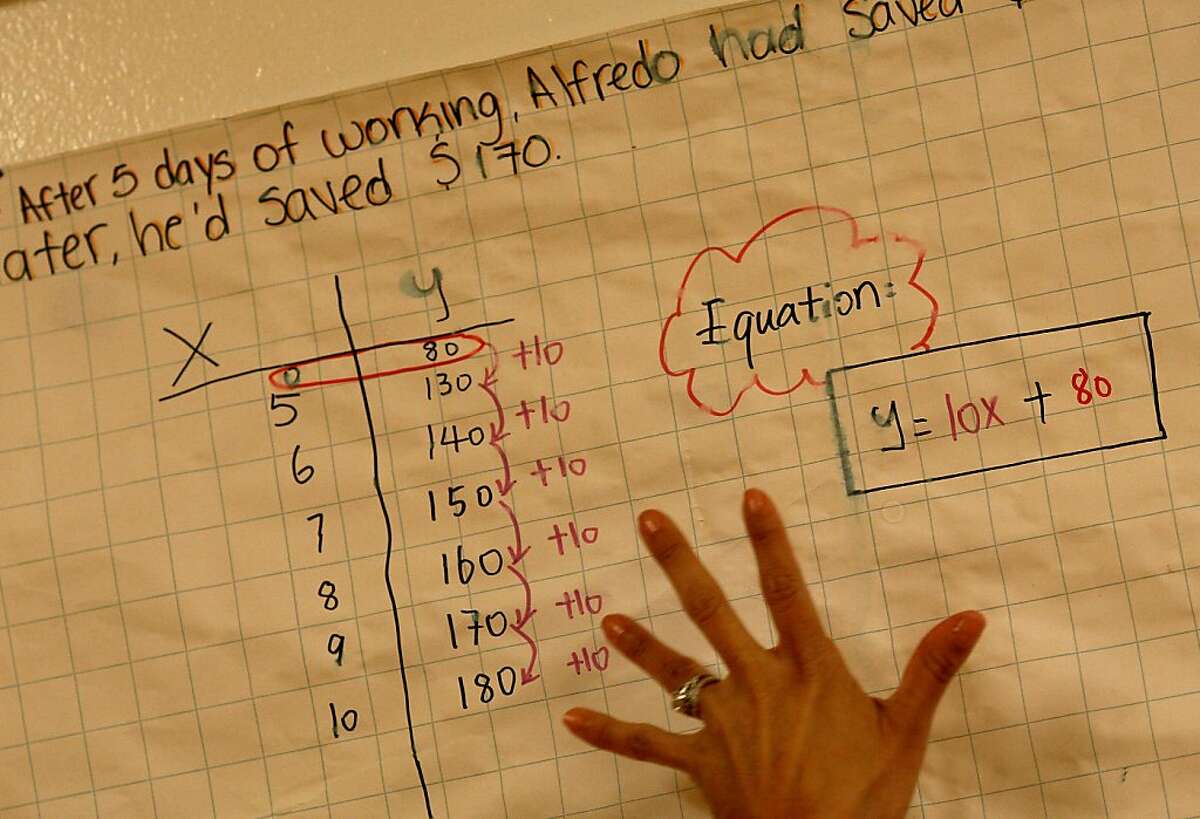 After 5 days of working, Alfredo had saved
ater, he'd saved $170.
X y
0 80
5 130
6 140
7 150
8 160
9 170
10 180
+10
+10
+10
+10
+10
+10
Equation:
y = 10x + 80